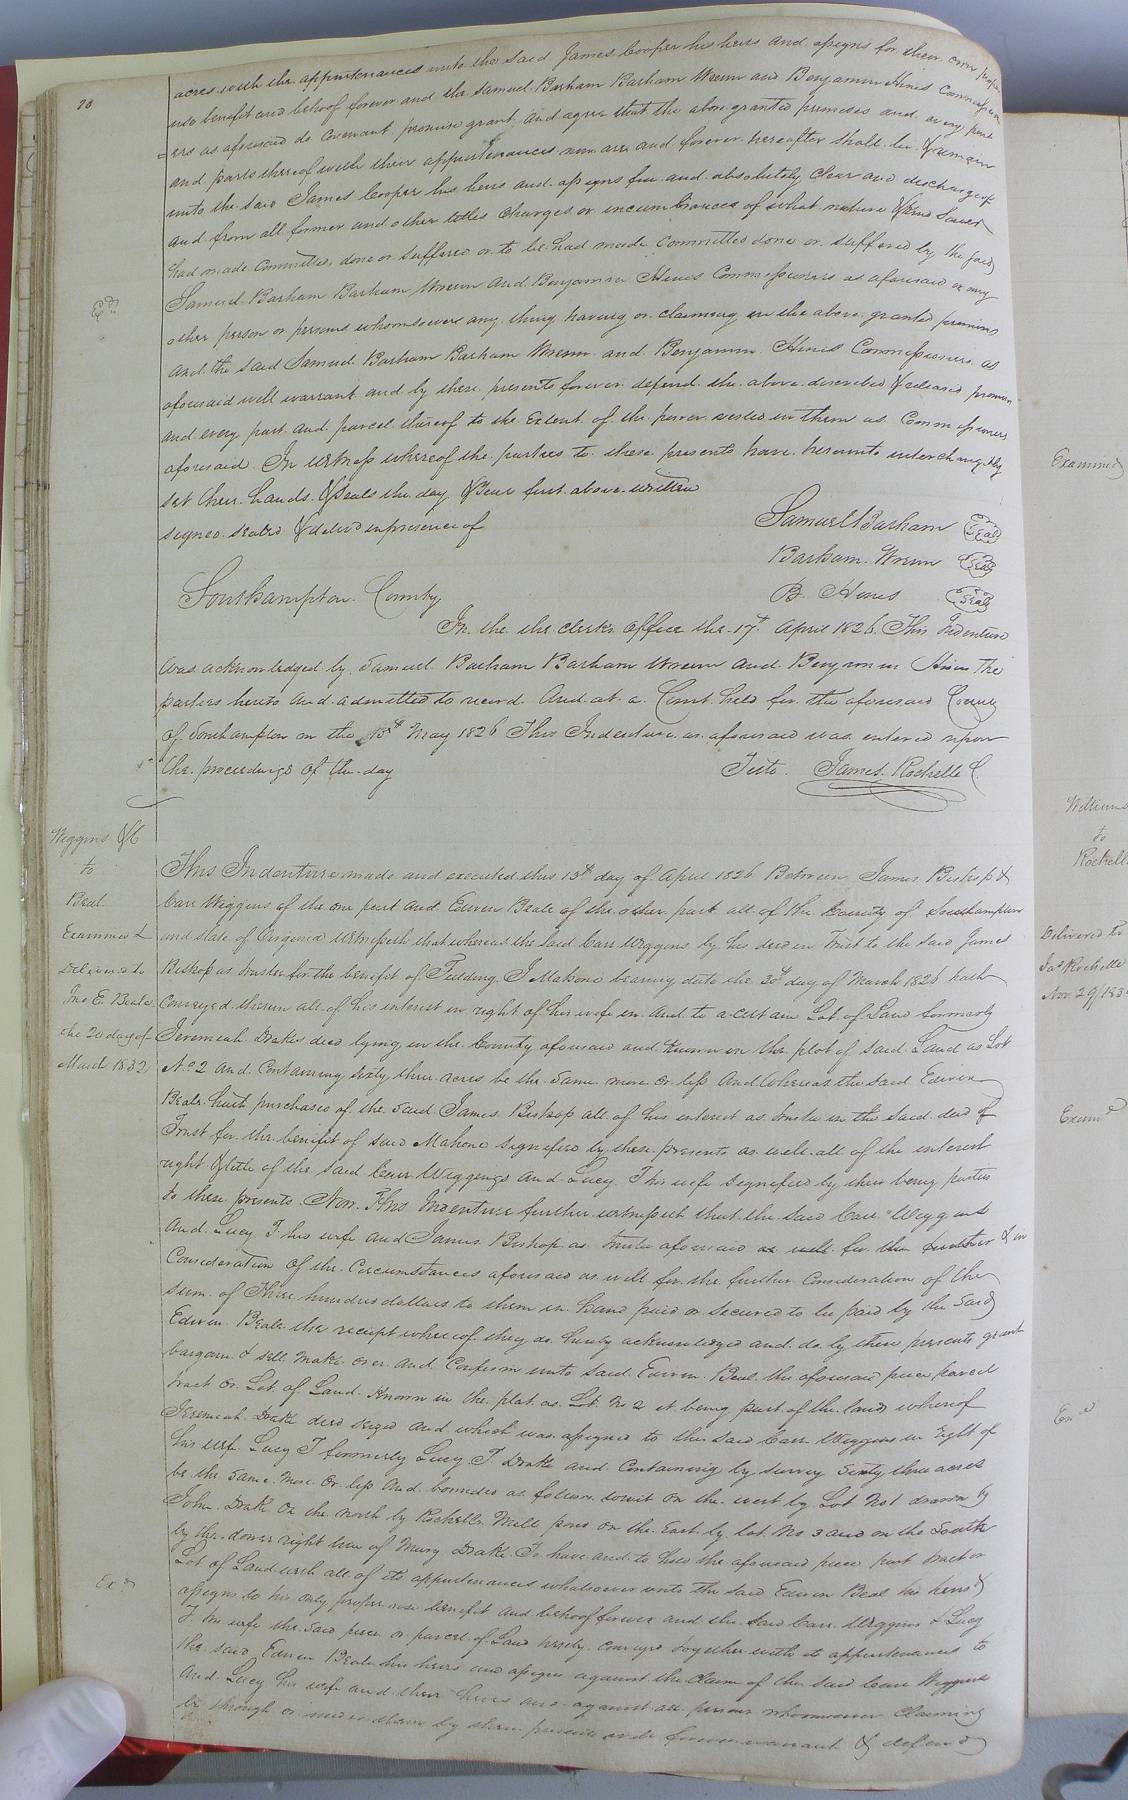 78
acres with the appurtenances unto the said James Cooper his heirs and assigns for their own proper
use benefit and behoof forever and the Samuel Barham Barham Wrenn and Benjamin Hines Commission
=ers as aforesaid do Covenant promise grant and agree that the above granted premises and every part
and parts thereof with their appurtenances now are and forever hereafter shall be & remain
unto the said James Cooper his heirs and assigns free and absolutely clear and discharged of
and from all former and other titles charges or incumbrances of what nature & kind soever
had made Committed done or suffered or to be had made Committed done or suffered by the said
Samuel Barham Barham Wrenn and Benjamin Hines Commissioners as aforesaid or any
other person or persons whomsoever any thing having or claiming in the above granted premises
And the said Samuel Barham Barham Wrenn and Benjamin Hines Commissioners as
aforesaid will warrant and by these presents forever defend the above described & released premises
and every part and parcel thereof to the Extent of the power vested in them as Commissioners
aforesaid In witness whereof the parties to these presents have hereunto interchangebly
set their hands & Seals the day & year first above written
signed sealed & delivd in presence of
Samuel Barham Seal
Barham Wrenn Seal
B. Hines Seal
Southampton County
In the the clerks office the 17th April 1826. This Indenture
was acknowledged by Samuel Barham Barham Wrenn and Benjamin Hines The
parties hereto and admitted to record. And at a Court held for the aforesaid County
of Southampton on the 15th May 1826 This Indenture as aforesaid was entered upon
the proceedings of the day
Teste James Rochelle C.
Wiggins &C
to
Beal
Examined &
Delivered to
Jno E. Beale
the 20 day of
March 1832
This Indenture made and executed this 13th day of April 1826 Between James Bishop &
Carr Wiggins of the one part and Edwin Beale of the other part all of the County of Southampton
and state of Virginia Witnesseth that whereas the said Carr Wiggins by his deed in Trust to the said James
Bishop as trustee for the benefit of Fielding J Mahone bearing date the 30th day of March 1826 hath
Conveyed therein all of his interest in right of his wife in and to a certain Lot of Land formerly
Jeremiah Drakes decd lying in the County aforesaid and known in the plot of said Land as Lot
No 2 and Containing Sixty three acres be the same more or less And whereas the said Edwin
Beale hath purchased of the said James Bishop all of his interest as trustee in the said deed of
Trust for the benefit of said Mahone signified by these presents as well all of the interest
right & title of the said Carr Wiggings and Lucy T his wife signified by their being parties
to these presents. Now This Indenture further witnesseth that the said Carr Wiggins
and Lucy T his wife and James Bishop as trustee aforesaid as well for the & in
Consideration of the Circumstances aforesaid as well for the further Consideration of the
sum of Three hundred dollars to them in hand paid or secured to be paid by the said
Edwin Beale the receipt whereof they do hereby acknowledge and do by these presents grant
bargain & sell make over and Confirm unto said Edwin Beal the aforesaid piece parcel
tract or Lot of Land known in the plat as Lot No 2 it being part of the land whereof
Jeremiah Drake died seized and which was assigned to the said Carr Wiggins in right of
his wife Lucy T formerly Lucy T. Drake and Containing by survey Sixty three acres
be the same more or less and bounded as follows towit on the west by Lot No1 drawn by
John Drake on the north by Rochells Mill pond on the East by lot No 3 and on the South
by the dower right line of Mary Drake To have and to hold the aforesaid piece part tract or
Lot of Land with all of its appurtenances whatsoever unto the said Edwin Beal his heirs &
assigns to his only proper use benefit and behoof forever and the said Carr Wiggins & Lucy
T his wife the said piece or parcel of Land hereby conveyed together with its appurtenances to
the said Edwin Beale his heirs and assigns against the claim of the said Carr Wiggins
and Lucy his wife and their heirs and against all persons whomsoever claiming
by through or under them by these presents will forever warrant & defend
Exd
Exd
Examined
Williams
to
Rochell
Delivered to
Jas Rochelle
Nov 29/183
Examd
Exd